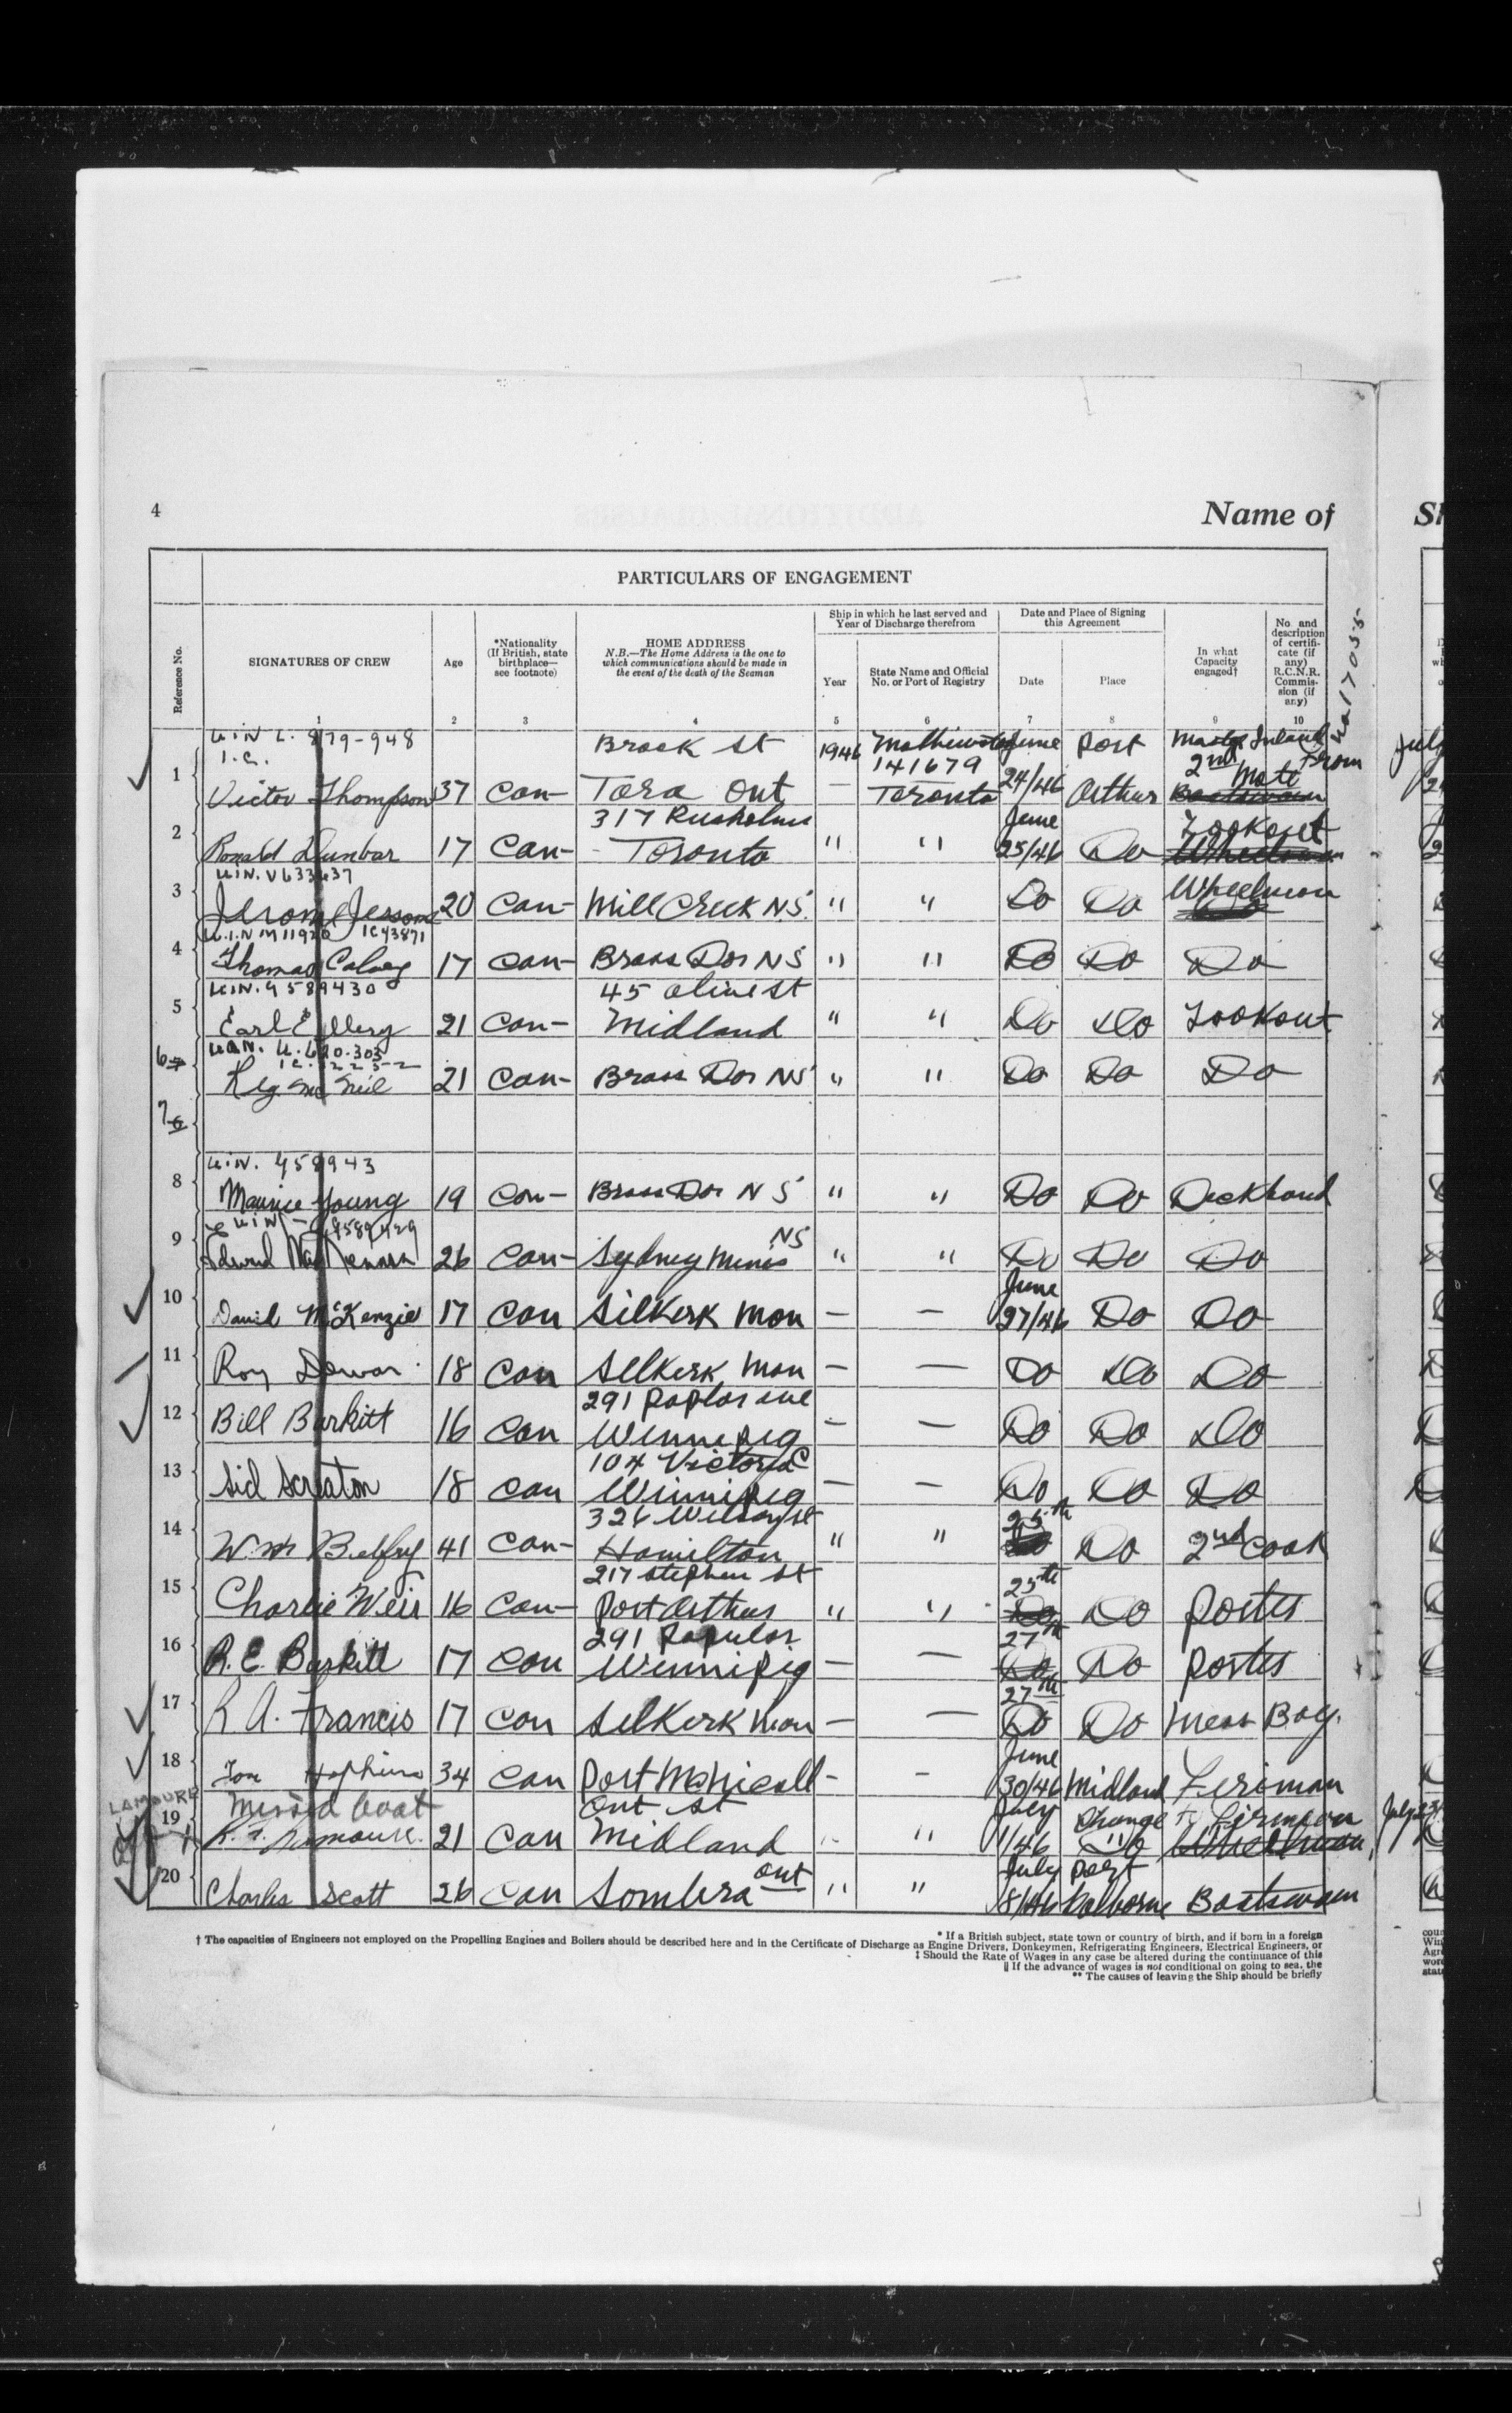 4
Name of
PARTICULARS OF ENGAGEMENT
Reference No.
SIGNATURES OF CREW
Age
*Nationality
(If British, state
birthplace—
see footnote)
HOME ADDRESS
N.B.—The Home Address is the one to
which communications should be made in
the event of the death of the Seaman
Ship in which he last served and
Year of Discharge therefrom
Year
State Name and Official
No. or Port of Registry
Date and Place of Signing
this Agreement
Date
Place
In what
Capacity
engaged†
No and
description
of certifi-
cate (if
any)
R.C.N.R.
Commis-
sion (if
any)
1 2 3 4 5 6 7 8 9 10
U.I.N L. 879-948 Brock St 1946 June Port
I.C. 141679 2nd Mate
1 Victor Thompson 37 Can- Tara Ont — Toronto 24/46 Arthur Boatswain
317 Rusholme June Lookout
2 Ronald Dunbar 17 Can- Toronto " " 25/46 Do Wheelsman
U.I.N. V633637
3 Jerome Jessome 20 Can- Mill Creek N.S. " " Do Do Wheelman
U.I.N M11926 IC43871
4 Thomas 17 Can- Brass Dor N S " " Do Do Do
U.I.N. 9589430 45 Oline St
5 Earl 21 Can- Midland " " Do Do Lookout
6 Reg Mc Neil 21 Can- Brass Dor NS " " Do Do Do
7
U.I.N. 958943
8 Maurice Young 19 Can- Brass Dor N S " " Do Do Deckhand
NS
9 Edward 26 Can- Sydney Mines " " Do Do Do
June
10 David McKenzie 17 Can Silkerk Man — — 27/46 Do Do
11 Roy Dewar 18 Can Selkerk Man — — Do Do Do
291 Poplar ave
12 Bill Burkitt 16 Can Winnipeg — — Do Do Do
104 Victoria
13 Sid Screaton 18 Can Winnipeg — — Do Do Do
326 Wilson St 25th
14 Wm 41 Can- Hamilton " " Do 2nd Cook
217 Stephen St 25th
15 Charlie Weir 16 Can- Port Arthur " " Do Do Porter
291 Popular 27th
16 R.E. Burkitt 17 Can Winnipeg — — Do Do Porter
27th
17 R A. Francis 17 Can Selkerk Man — — Do Do Mess Boy.
June
18 Hopkins 34 Can Port McNicoll - - 30/46 Midland Firiman
LAMOURE Missed boat Ont St July Change to Firemoan July 23
19 R. F. Lamoure. 21 Can Midland " " 1/46 Do Wheelsman
Ont July Port
20 Charles Scott 26 Can Sombra " " 8/46 Colborne Boatswain
† The capacities of Engineers not employed on the Propelling Engines and Boilers should be described here and in the Certificate of Discharge as Engine Drivers, Donkeymen, Refrigerating Engineers, Electrical Engineers, or
* If a British subject, state town or country of birth, and if born in a foreign
‡ Should the Rate of Wages in any case be altered during the continuance of this
‖ If the advance of wages is not conditional on going to sea, the
** The causes of leaving the Ship should be briefly